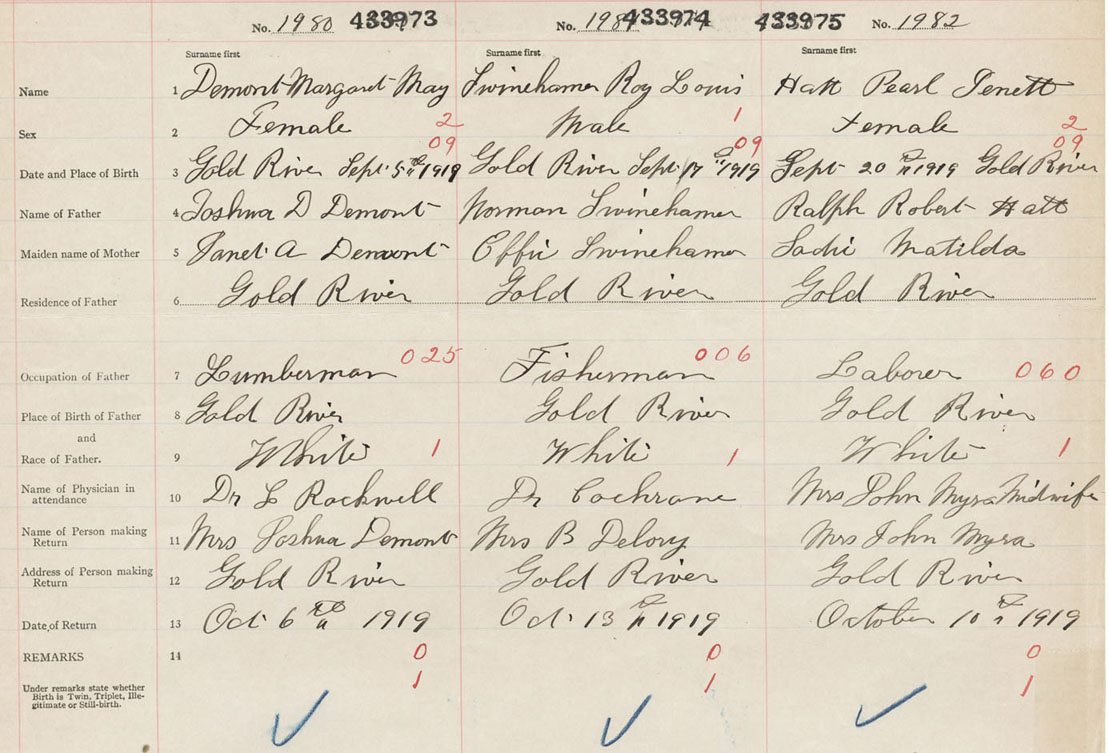 No. 1980 433973 No. 1981 433974 433975 No. 1982
Surname first Surname first Surname first
Name 1 Demont Margaret May Swinehamer Roy Louis Hatt Pearl Jenett
Sex 2 Female 2 Male 1 Female 2
09 09 09
Date and Place of Birth 3 Gold River Sept. 5th 1919 Gold River Sept. 17th 1919 Sept 20th 1919 Gold River
Name of Father 4 Joshua D Demont Norman Swinehamer Ralph Robert Hatt
Maiden name of Mother 5 Janet A Demont Effie Swinehamer Sadie Matilda
Residence of Father 6 Gold River Gold River Gold River
025 006
Occupation of Father 7 Lumberman Fisherman Laborer 060
Place of Birth of Father 8 Gold River Gold River Gold River
and
Race of Father. 9 White 1 White 1 White 1
Name of Physician in
attendance 10 Dr L Rockwell Dr Cochrane Mrs John Myra Midwife
Name of Person making
Return 11 Mrs Joshua Demont Mrs B Delory Mrs John Myra
Address of Person making
Return 12 Gold River Gold River Gold River
Date of Return 13 Oct. 6th 1919 Oct. 13th 1919 October 10th 1919
REMARKS 14 0 0 0
1 1 1
Under remarks state whether
Birth is Twin, Triplet, Ille-
gitimate or Still-birth.